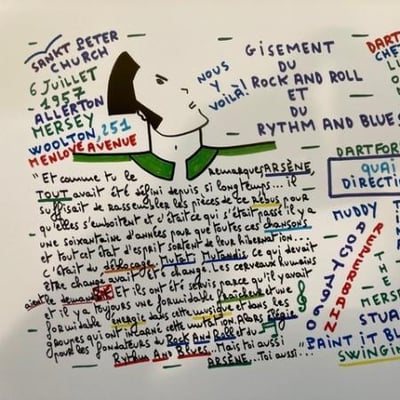 SANKT PETER
CHURCH
6 JUILLET
- 1957
ALLERTON
MERSEY
WOOLTON, 251
MENLOVE AVENUE
NOUS
Y
VOILÀ!
GISEMENT
DU
ROCK AND ROLL
ET
DU
RYTHM AND BLUES
"Et comme tu le remarques ARSÈNE,
TOUT avait été défini depuis si longtemps... il
suffisait de rassembler les pièces de ce rébus pour
qu'elles s'emboitent et c'était ce qui s'était passé il y a
une soixantaine d'années pour que toutes ces chansons
et tout cet état d'esprit sortent de leur hibernation...
c'était du déblocage Mutat Mutandis. Ce qui devait
être changé avait été changé. Les cerveaux humains
aient le demandé. Et ils ont été servis parce qu'il y avait
et il y a toujours une formidable fraîcheur et une
formidable énergie dans cette musique et dans les
groupes qui ont incarné cette mutation. Alors élégie
pour les fondateurs du Rock And Roll et du
Rythm And Blues... Mais toi aussi
ARSÈNE... Toi aussi..."
DART
CHE
LI
DARTFOR
QUAI
DIRECTI
MUDDY
ROSY
1960
REDEBAIN
THE
MERSE
STUA
PAINT IT BL
SWINGIN